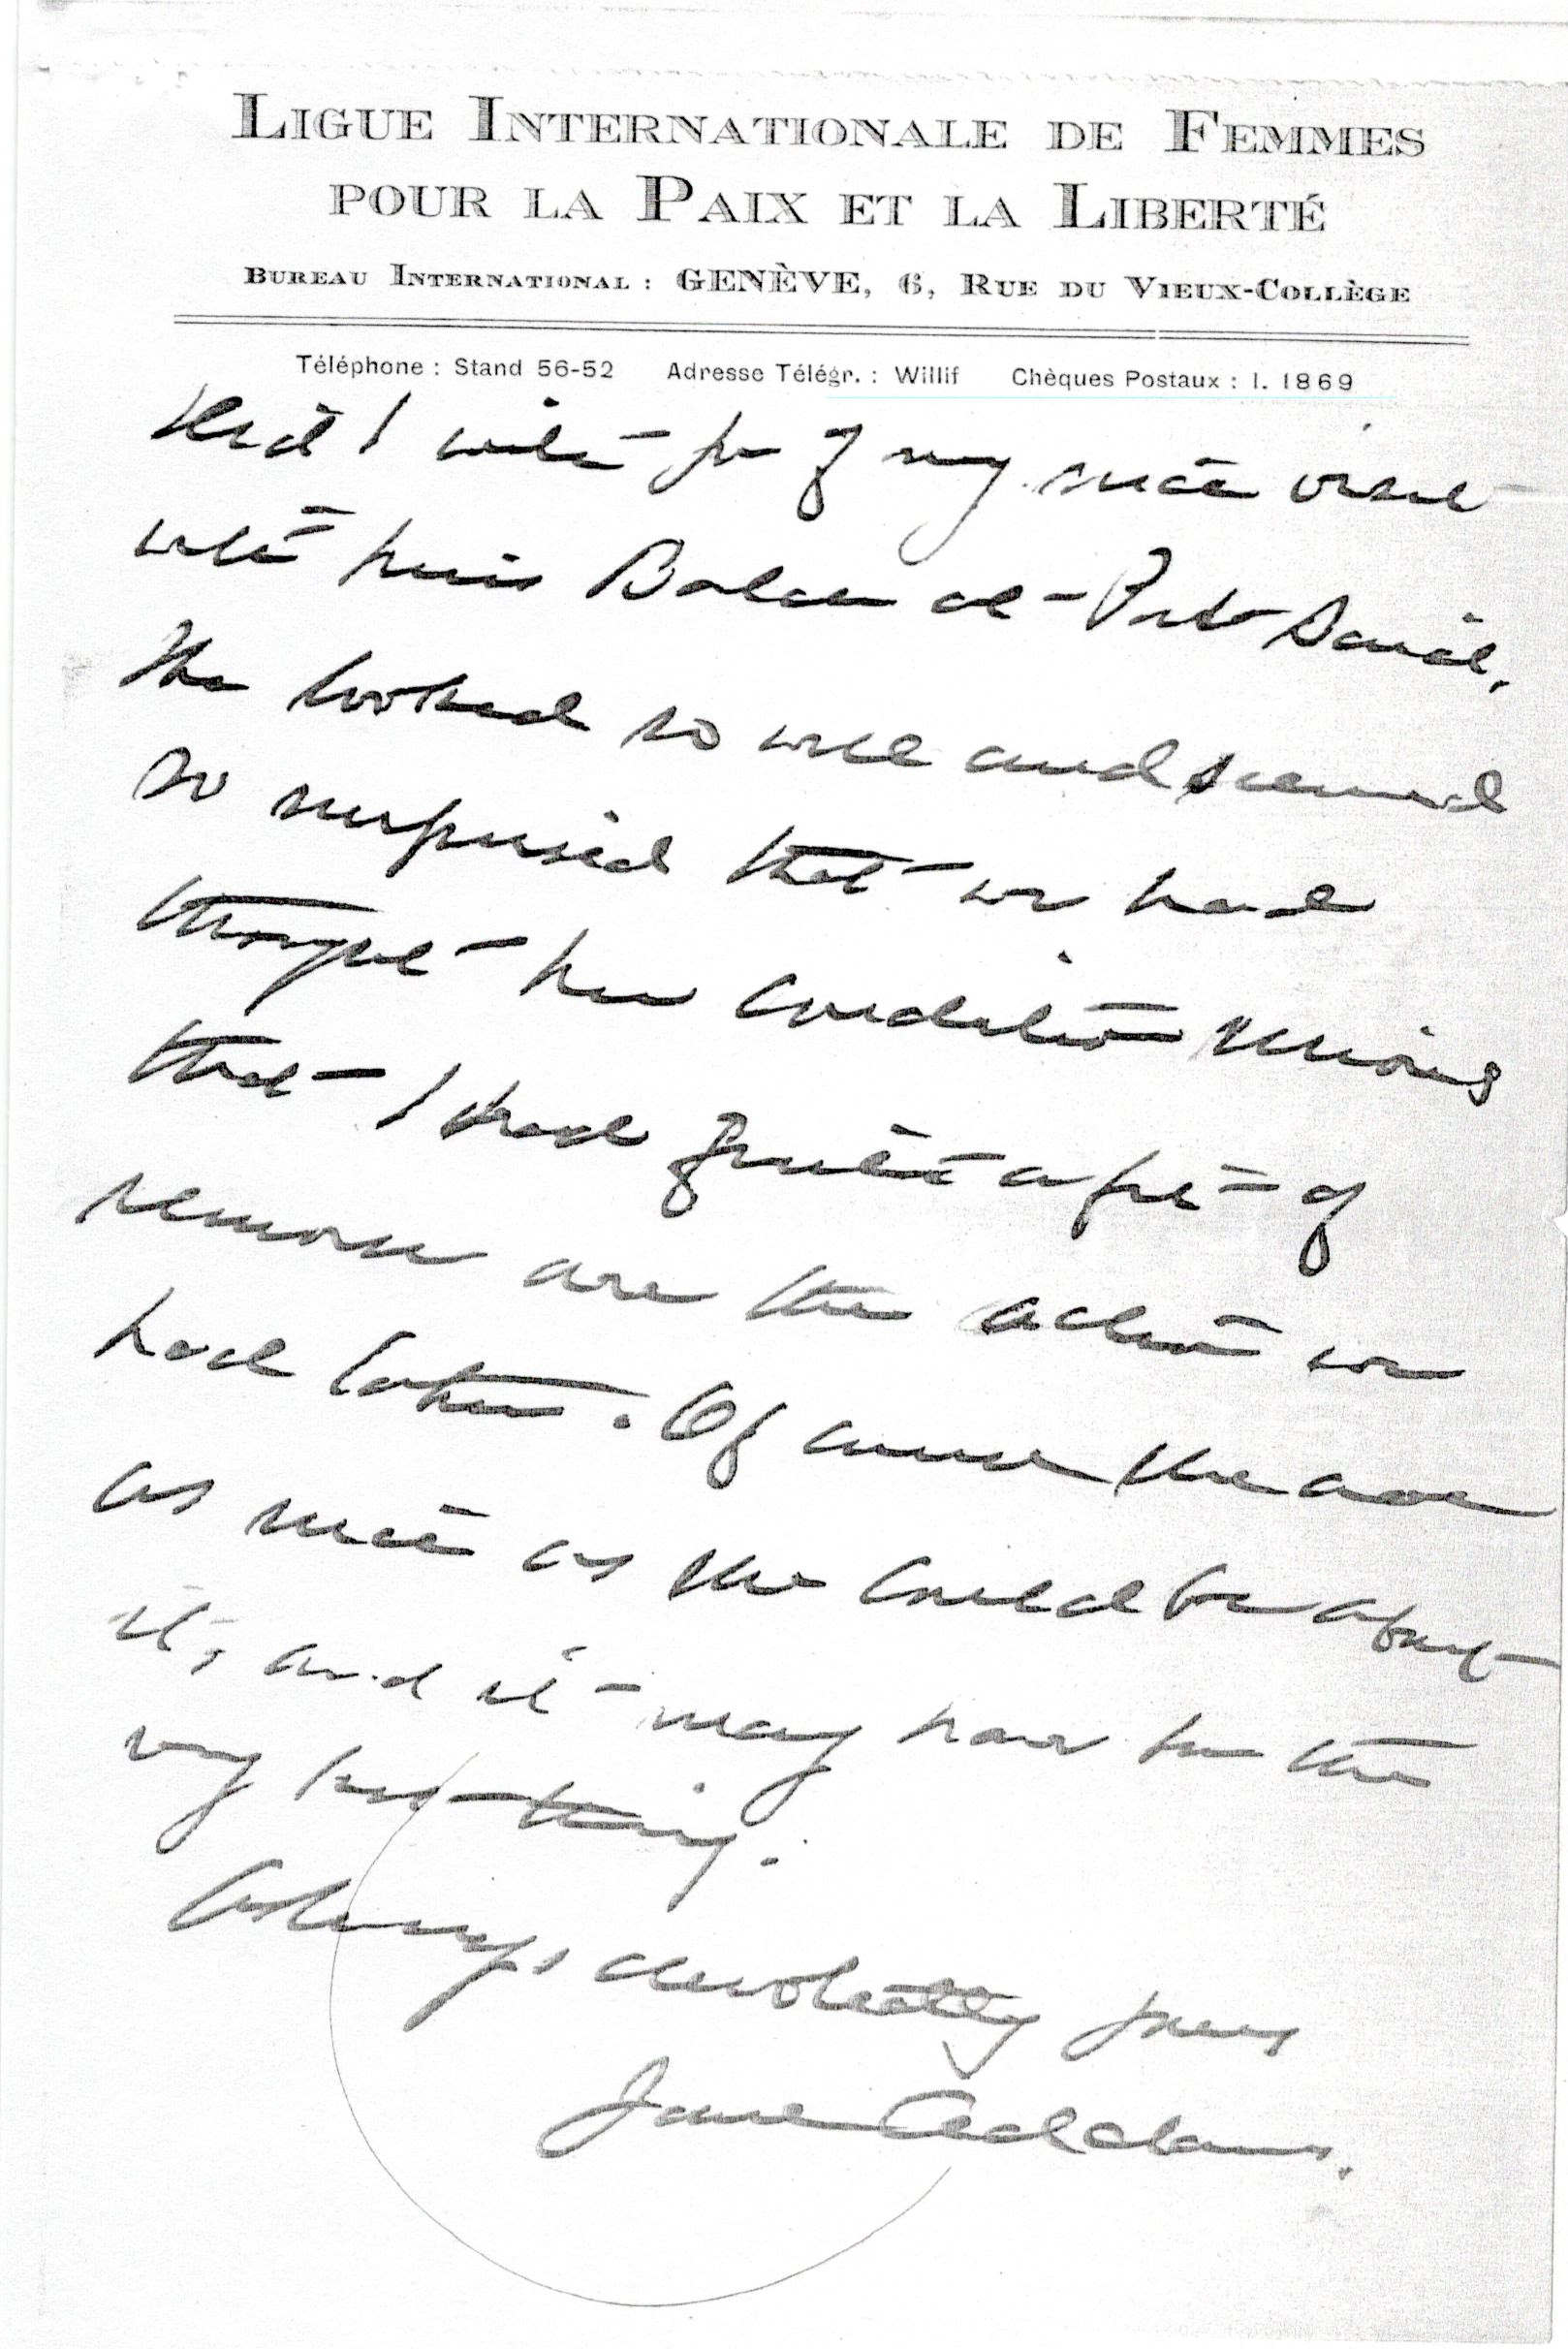 LIGUE INTERNATIONALE DE FEMMES
POUR LA PAIX ET LA LIBERTÉ
BUREAU INTERNATIONAL : GENÈVE, 6, RUE DU VIEUX-COLLÈGE
Téléphone : Stand 56-52 Adresse Télégr. : Willif Chèques Postaux : I. 1869
Did I write you of my nice visit
with Miss Balch at Port Said,
She looked so well and seemed
so surprised that we had
thought her condition serious
that I had quite a fit of
remorse over the action we
had taken. Of course she was
as nice as she could be about
it, and it may have been the
very best thing.
Always devotedly yours
Jane Addams.